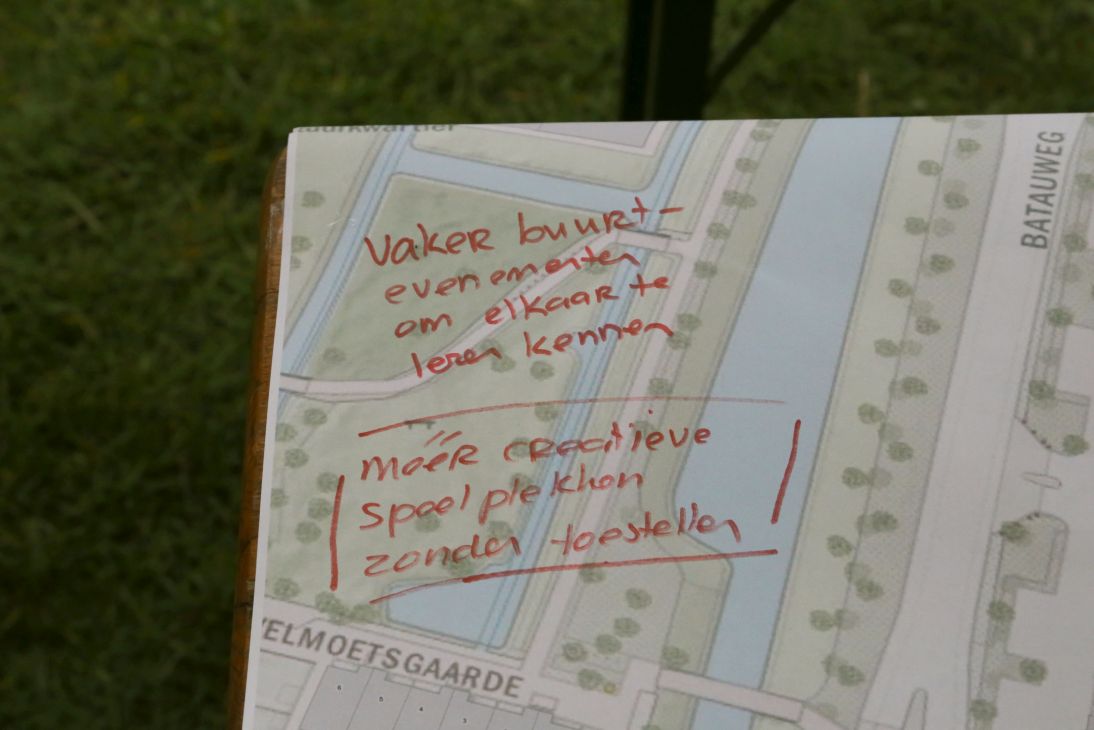 BATAUWEG
Vaker buurt-
evenementen
om elkaar te
leren kennen
méér creatieve
speelplekken
zonder toestellen
VELMOETSGAARDE
6
5
4
3